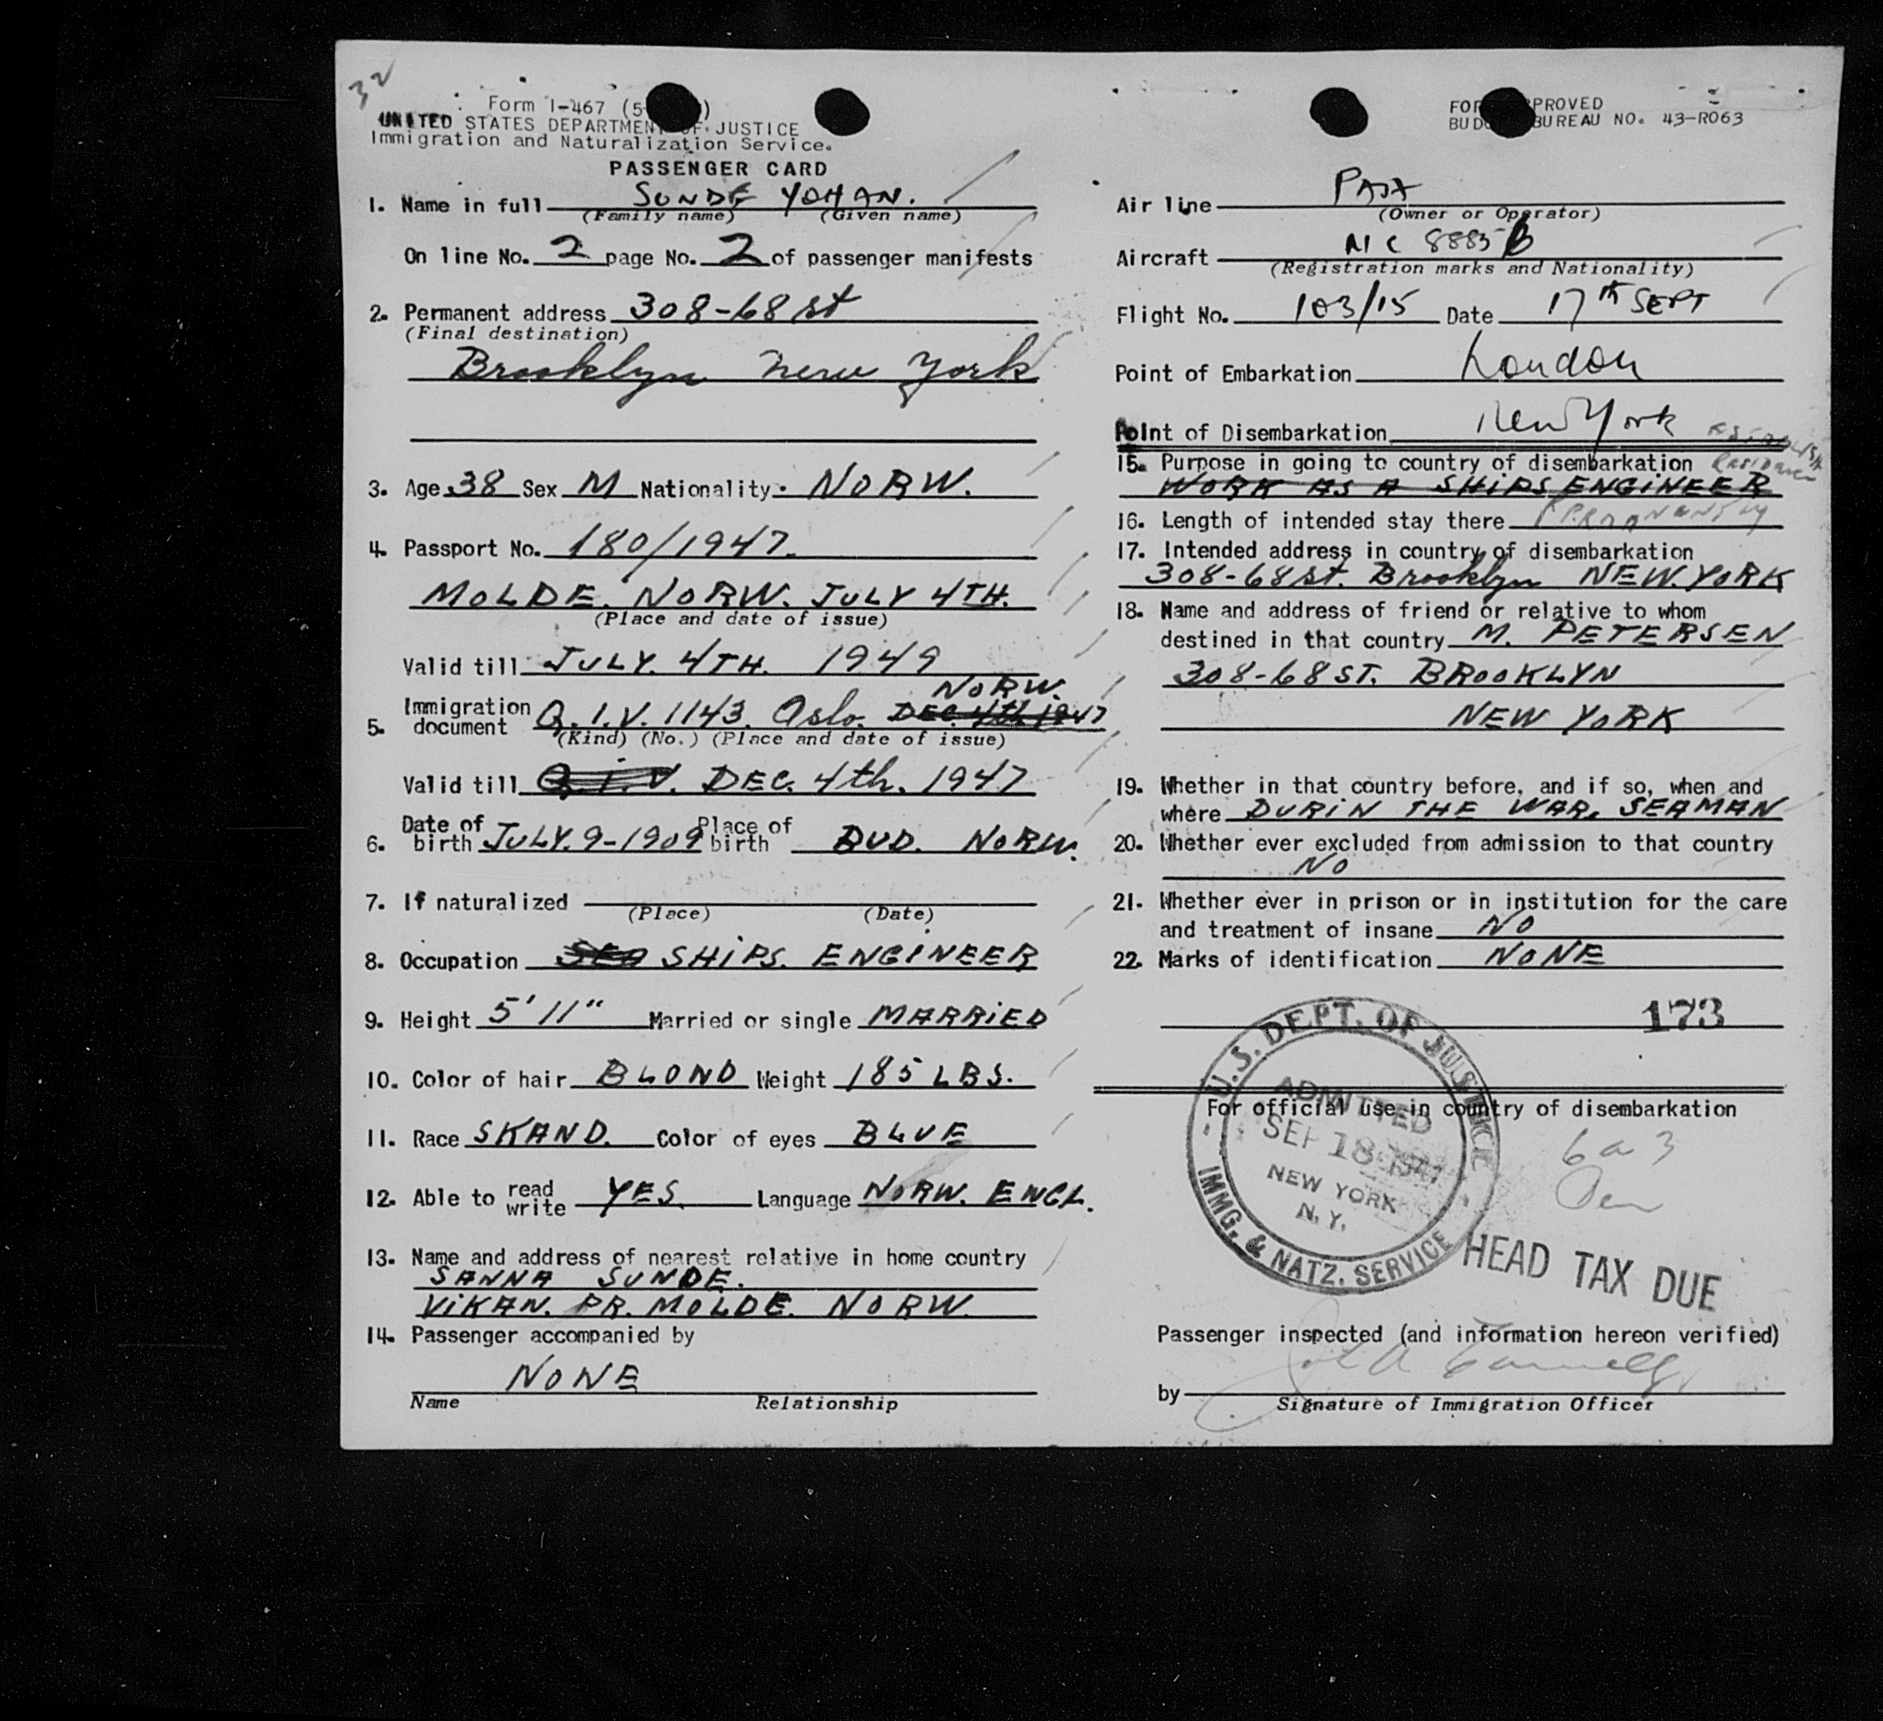 32
Form I-467 (5
UNITED STATES DEPARTMENT OF JUSTICE
Immigration and Naturalization Service.
PASSENGER CARD
1. Name in full SUNDE YOHAN.
(Family name) (Given name)
On line No. 2 page No. 2 of passenger manifests
2. Permanent address 308-68 st
(Final destination)
Brooklyn New York
3. Age 38 Sex M Nationality NORW.
4. Passport No. 180/1947.
MOLDE. NORW. JULY 4TH.
(Place and date of issue)
Valid till JULY. 4TH. 1949
NORW.
5. Immigration document Q.I.V. 1143. Oslo. DEC. 4th 1947
(Kind) (No.) (Place and date of issue)
Valid till Q.I.V. DEC. 4th. 1947
6. Date of birth JULY. 9-1909 Place of birth BUD. NORW.
7. If naturalized
(Place) (Date)
8. Occupation SEA SHIPS. ENGINEER
9. Height 5' 11" Married or single MARRIED
10. Color of hair BLOND Weight 185 LBS.
11. Race SKAND. Color of eyes BLUE
12. Able to read write YES. Language NORW. ENGL.
13. Name and address of nearest relative in home country
SANNA SUNDE.
VIKAN. PR. MOLDE. NORW.
14. Passenger accompanied by
NONE
Name Relationship
FORM APPROVED
BUDGET BUREAU NO. 43-R063
Air line PAA
(Owner or Operator)
Aircraft NC 8885 B
(Registration marks and Nationality)
Flight No. 103/15 Date 17th SEPT
Point of Embarkation London
Point of Disembarkation New York
15. Purpose in going to country of disembarkation ESTABLISH RESIDENCE
WORK AS A SHIPS ENGINEER
16. Length of intended stay there PERMANENTLY
17. Intended address in country of disembarkation
308-68 st. Brooklyn NEW. YORK
18. Name and address of friend or relative to whom
destined in that country M. PETERSEN
308-68 ST. BROOKLYN
NEW YORK
19. Whether in that country before, and if so, when and
where DURIN THE WAR. SEAMAN
20. Whether ever excluded from admission to that country
NO
21. Whether ever in prison or in institution for the care
and treatment of insane NO
22. Marks of identification NONE
173
For official use in country of disembarkation
U.S. DEPT. OF JUSTICE
ADMITTED
SEP 18 1947
NEW YORK
N.Y.
IMMG. & NATZ. SERVICE
6 a 3
HEAD TAX DUE
Passenger inspected (and information hereon verified)
by
Signature of Immigration Officer